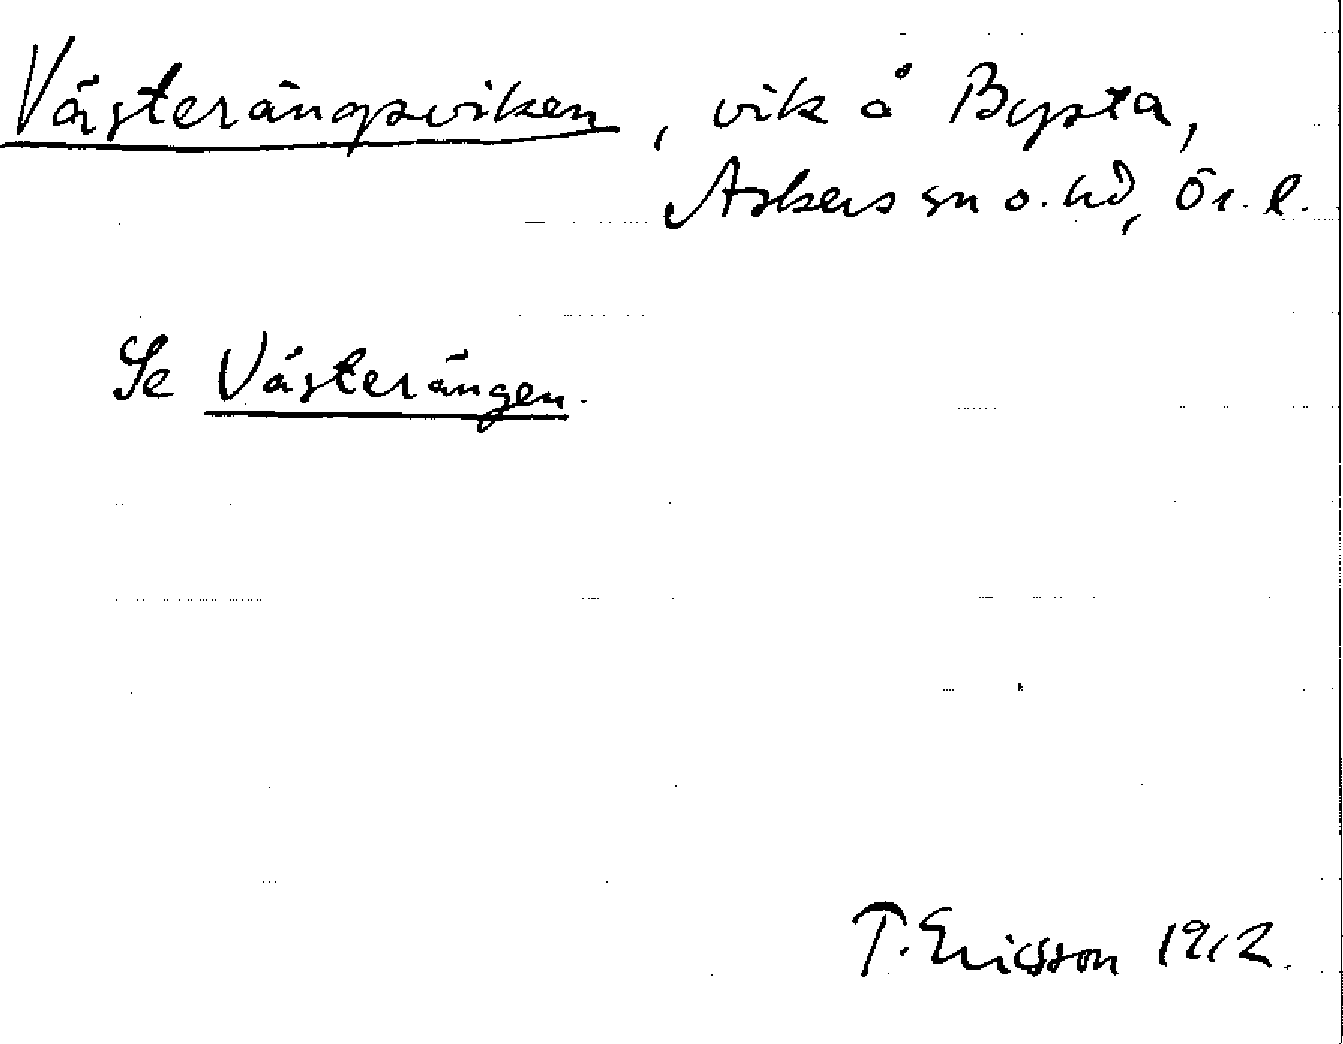 Västerängsviken, vik å Bysta,
Askers sn o. hd, Ör. l.
Se Västerängen.
T. Ericsson 1912.